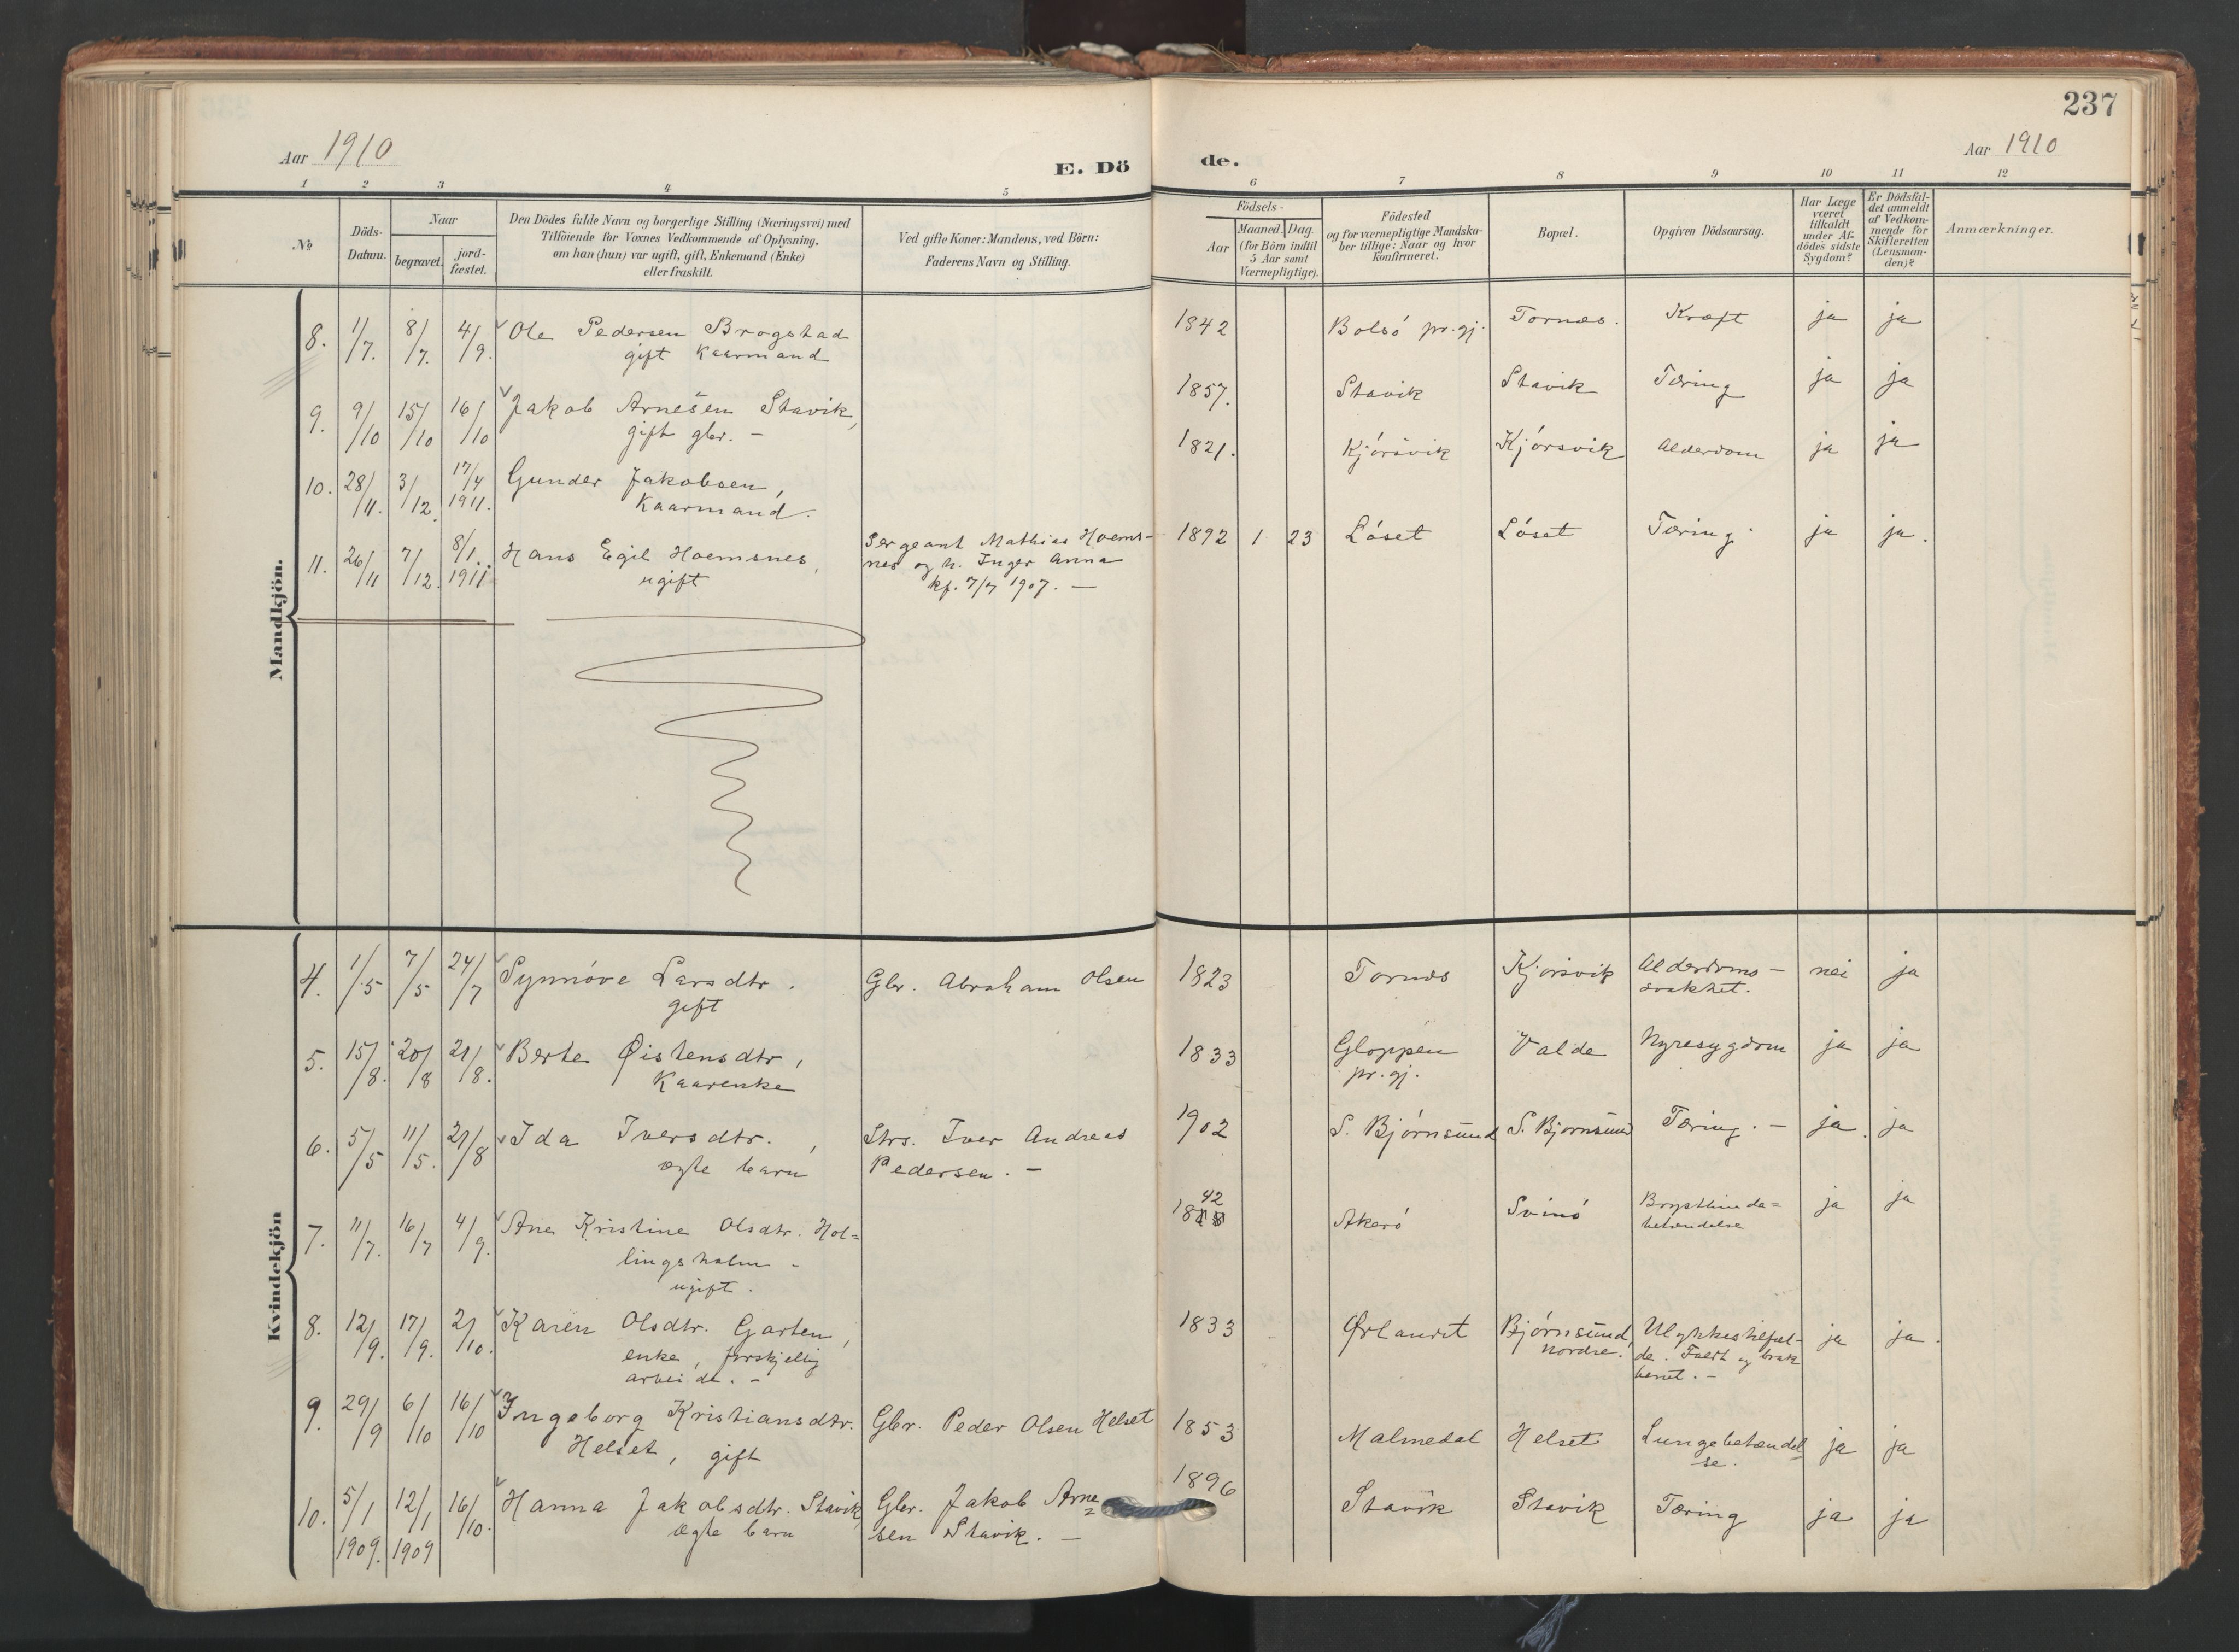 237
Aar 1910
E. Dö
de.
Aar 1910
1 2 3 4 5 6 7 8 9 10 11 12
No
Döds-
Datum.
Naar
begravet.
jord-
fæstet.
Den Dödes fulde Navn og borgerlige Stilling (Næringsvei) med
Tilföiende for Voxnes Vedkommende af Oplysning,
om han (hun) var ugift, gift, Enkemand (Enke)
eller fraskilt.
Ved gifte Koner: Mandens, ved Börn:
Faderens Navn og Stilling.
Födsels-
Aar
Maaned. Dag.
(for Börn indtil
5 Aar samt
Værnepligtige).
Födested
og for værnepligtige Mandska-
ber tillige: Naar og hvor
konfirmeret.
Bopæl.
Opgiven Dödsaarsag.
Har Læge
været
tilkaldt
under Af-
dödes sidste
Sygdom?
Er Dödsfal-
det anmeldt
af Vedkom-
mende for
Skifteretten
(Lensman-
den)?
Anmærkninger.
Mandkjön.
8. 1/7. 8/7. 4/9. Ole Pedersen Brogstad 1842 Bolsö pr.gj. Tornæs. Kræft ja ja
gift Kaarmand
9. 9/10 15/10 16/10 Jakob Arnesen Stavik, 1857. Stavik Stavik Tæring ja ja
gift gbr. -
10. 28/11. 3/12. 17/4 1911. Gunder Jakobsen, 1821. Kjörsvik Kjörsvik Alderdom ja ja
Kaarmand.
11. 26/11 7/12. 8/1. 1911. Hans Egil Hoemsnes, Sergeant Mathias Hoems- 1892 1 23 Löset Löset Tæring ja ja.
ugift nes og h. Inger Anna
kf. 7/7 1907. -
Kvindekjön
4. 1/5 7/5 24/7 Synnöve Larsdtr. Gbr. Abraham Olsen 1823 Tornæs Kjörsvik Alderdoms- nei ja
gift svakhet.
5. 15/8. 20/8 21/8. Berte Øistensdtr, 1833 Gloppen Valde Nyresygdom ja ja
Kaarenke pr.gj.
6. 5/5 11/5. 21/8 Ida Iversdtr., Strs. Iver Andreas 1902 S. Björnsund S. Björnsund Tæring. - ja. ja
ægte barn Pedersen. -
7. 11/7. 16/7 4/9. Ane Kristine Olsdtr. Hol= 1842 Akerö Svinö Brysthinde= ja ja
lingsholm - betændelse
ugift.
8. 12/9. 17/9. 2/10. Karen Olsdtr. Garten, 1833 Ørlandet Björnsund, Ulykkestilfæl- ja ja.
enke, forskjellig nordre. de. Faldt og brak
arbeide. - benet. -
9. 29/9 6/10 16/10 Ingeborg Kristiansdtr. Gbr. Peder Olsen Helset 1853 Malmedal Helset Lungebetændel ja ja
Helset, gift se.
10. 5/1 1909. 12/1 1909 16/10. Hanna Jakobsdtr. Stavik Gbr. Jakob Arne= 1896 Stavik Stavik Tæring ja ja
ægte barn sen Stavik. -